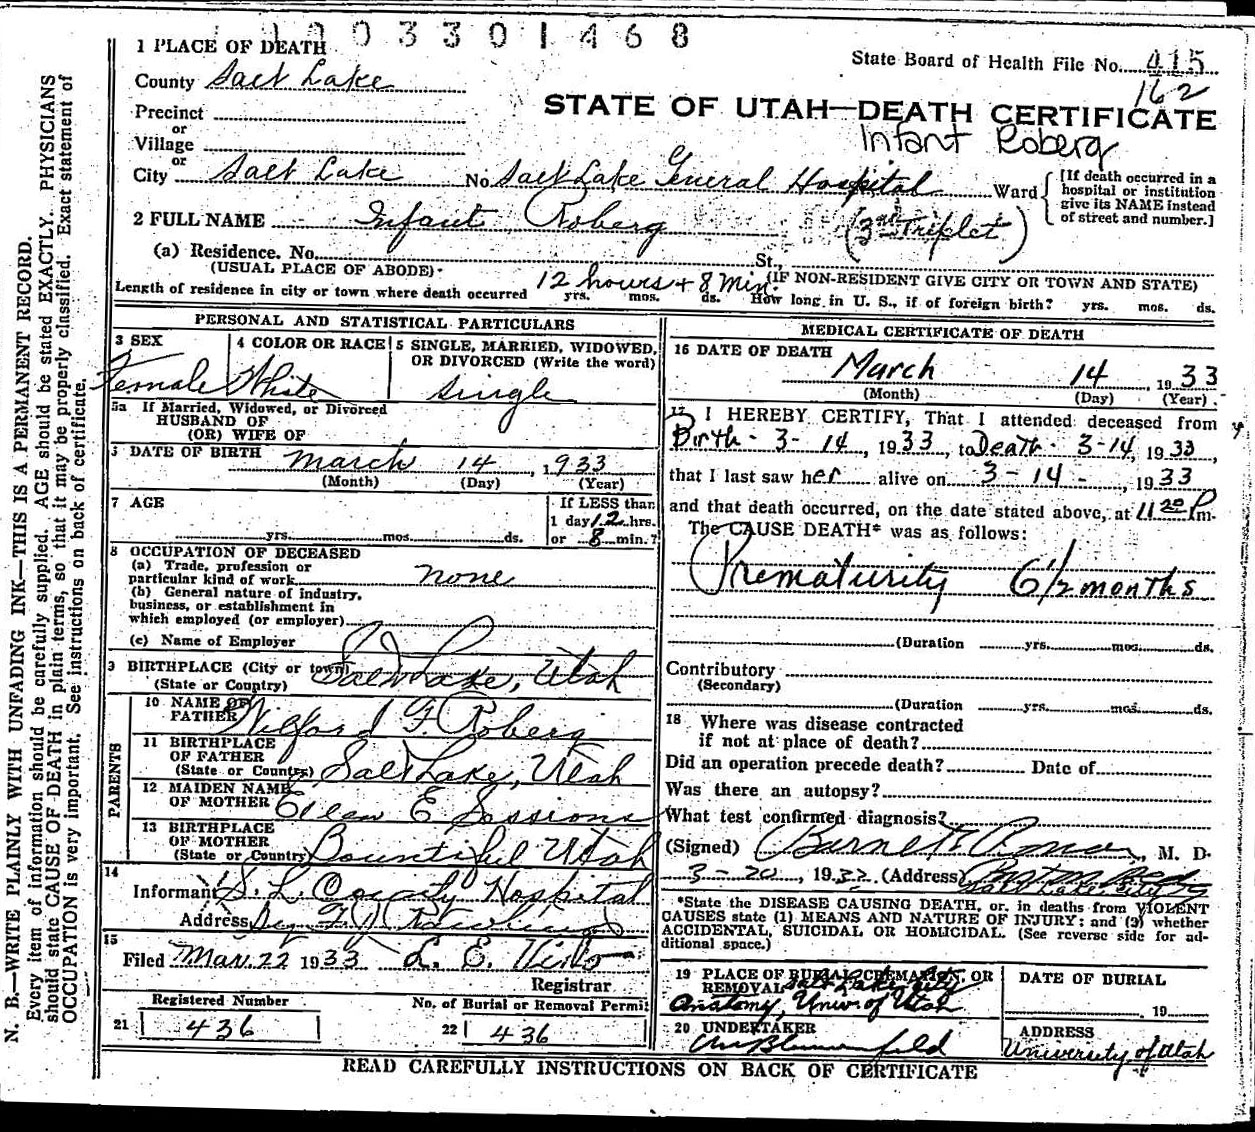 1003301468
1 PLACE OF DEATH
State Board of Health File No. 415
162
County Salt Lake
STATE OF UTAH—DEATH CERTIFICATE
Precinct
or
Village
or
Infant Roberg
City Salt Lake No. Salt Lake General Hospital Ward
[If death occurred in a hospital or institution give its NAME instead of street and number.]
2 FULL NAME Infant Roberg (3rd Triplet)
(a) Residence. No. St.
(USUAL PLACE OF ABODE) (IF NON-RESIDENT GIVE CITY OR TOWN AND STATE)
Length of residence in city or town where death occurred 12 hours + 8 Min. yrs. mos. ds. How long in U. S., if of foreign birth? yrs. mos. ds.
PERSONAL AND STATISTICAL PARTICULARS
3 SEX Female
4 COLOR OR RACE White
5 SINGLE, MARRIED, WIDOWED, OR DIVORCED (Write the word) single
5a If Married, Widowed, or Divorced
HUSBAND OF
(OR) WIFE OF
DATE OF BIRTH March 14, 1933
(Month) (Day) (Year)
7 AGE
yrs. mos. ds.
If LESS than
1 day 12 hrs.
or 8 min.?
8 OCCUPATION OF DECEASED
(a) Trade, profession or
particular kind of work none
(b) General nature of industry,
business, or establishment in
which employed (or employer)
(c) Name of Employer
9 BIRTHPLACE (City or town)
(State or Country) Salt Lake, Utah
PARENTS
10 NAME OF FATHER Wilford F. Roberg
11 BIRTHPLACE OF FATHER
(State or Country) Salt Lake, Utah
12 MAIDEN NAME OF MOTHER E Sessions
13 BIRTHPLACE OF MOTHER
(State or Country) Bountiful Utah
14
Informant S. L. County Hospital
Address
15
Filed Mar. 22 1933 L. E.
Registrar
Registered Number
21 436
No. of Burial or Removal Permit
22 436
MEDICAL CERTIFICATE OF DEATH
16 DATE OF DEATH March 14, 1933
(Month) (Day) (Year)
17 I HEREBY CERTIFY, That I attended deceased from
Birth - 3 - 14, 1933, to Death - 3-14, 1933,
that I last saw her alive on 3 - 14 -, 1933
and that death occurred, on the date stated above, at 11 20 P m.
The CAUSE DEATH* was as follows:
Prematurity 6 1/2 months
(Duration yrs. mos. ds.
Contributory
(Secondary)
(Duration yrs. mos. ds.
18 Where was disease contracted
if not at place of death?
Did an operation precede death? Date of
Was there an autopsy?
What test confirmed diagnosis?
(Signed) M. D.
3 - 20, 1933 (Address)
Salt Lake City
*State the DISEASE CAUSING DEATH, or, in deaths from VIOLENT
CAUSES state (1) MEANS AND NATURE OF INJURY; and (3) whether
ACCIDENTAL, SUICIDAL OR HOMICIDAL. (See reverse side for ad-
ditional space.)
19 PLACE OF BURIAL, CREMATION, OR
REMOVAL Salt Lake City
Anatomy, Univ. of Utah
DATE OF BURIAL
19
20 UNDERTAKER
Blumenfeld
ADDRESS
University of Utah
READ CAREFULLY INSTRUCTIONS ON BACK OF CERTIFICATE
N. B.—WRITE PLAINLY WITH UNFADING INK—THIS IS A PERMANENT RECORD.
Every item of information should be carefully supplied. AGE should be stated EXACTLY. PHYSICIANS
should state CAUSE OF DEATH in plain terms, so that it may be properly classified. Exact statement of
OCCUPATION is very important. See instructions on back of certificate.